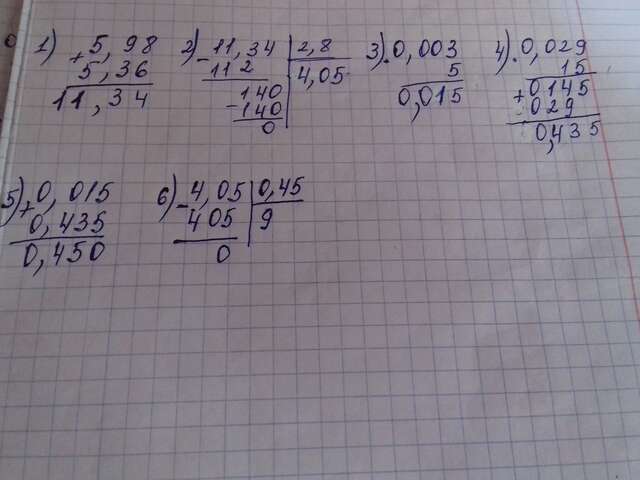 1) 5,98
+ 5,36
11,34
2) - 11,34 | 2,8
112 | 4,05
140
- 140
0
3) · 0,003
5
0,015
4) · 0,029
15
+ 0145
029
0,435
5) + 0,015
0,435
0,450
6) - 4,05 | 0,45
405 | 9
0